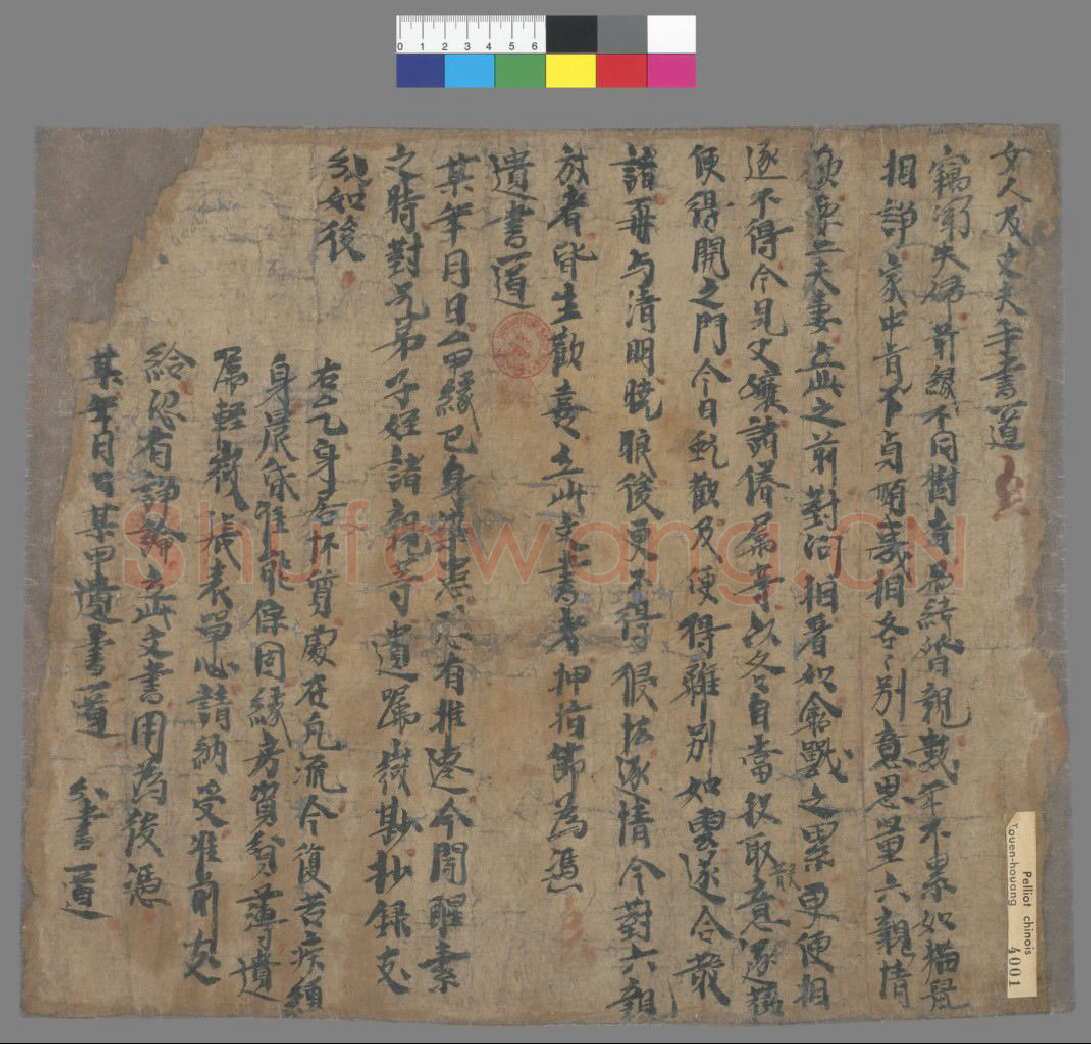 女人及丈夫手書一道
竊聞夫婦前緣不同樹者為結婚親數年不累如猫鼠
相諍家中肯不貞順義相各〻別意思量六親情
二夫妻立此之前對問相看如禽獸之累更便相
逐不得今見父孃諸眷屬等以各自當投取散意逐歡
便得開之門今日歡及便得離別如雲遂合散
諸再与清明曉眼後更不得侵逐情今對六親
放者皆生歡喜立此文書者押指節為憑
遺書一道
某年月日厶甲緣己身染患恐有推遷今聞醒素
之時對兄弟子姪諸親等遺囑微斟抄錄支
分如後
右厶乙身居怀質處在凡流今復苦疾纏
身晨昏准能保固緣房資貧薄遺
囑輕微張表單心請納受准前支
給恐有諍論立此文書用為後憑
某年月日某甲遺書一道
分書一道
Pelliot chinois
Touen-houang 4001
0 1 2 3 4 5 6
Shufawang.CN